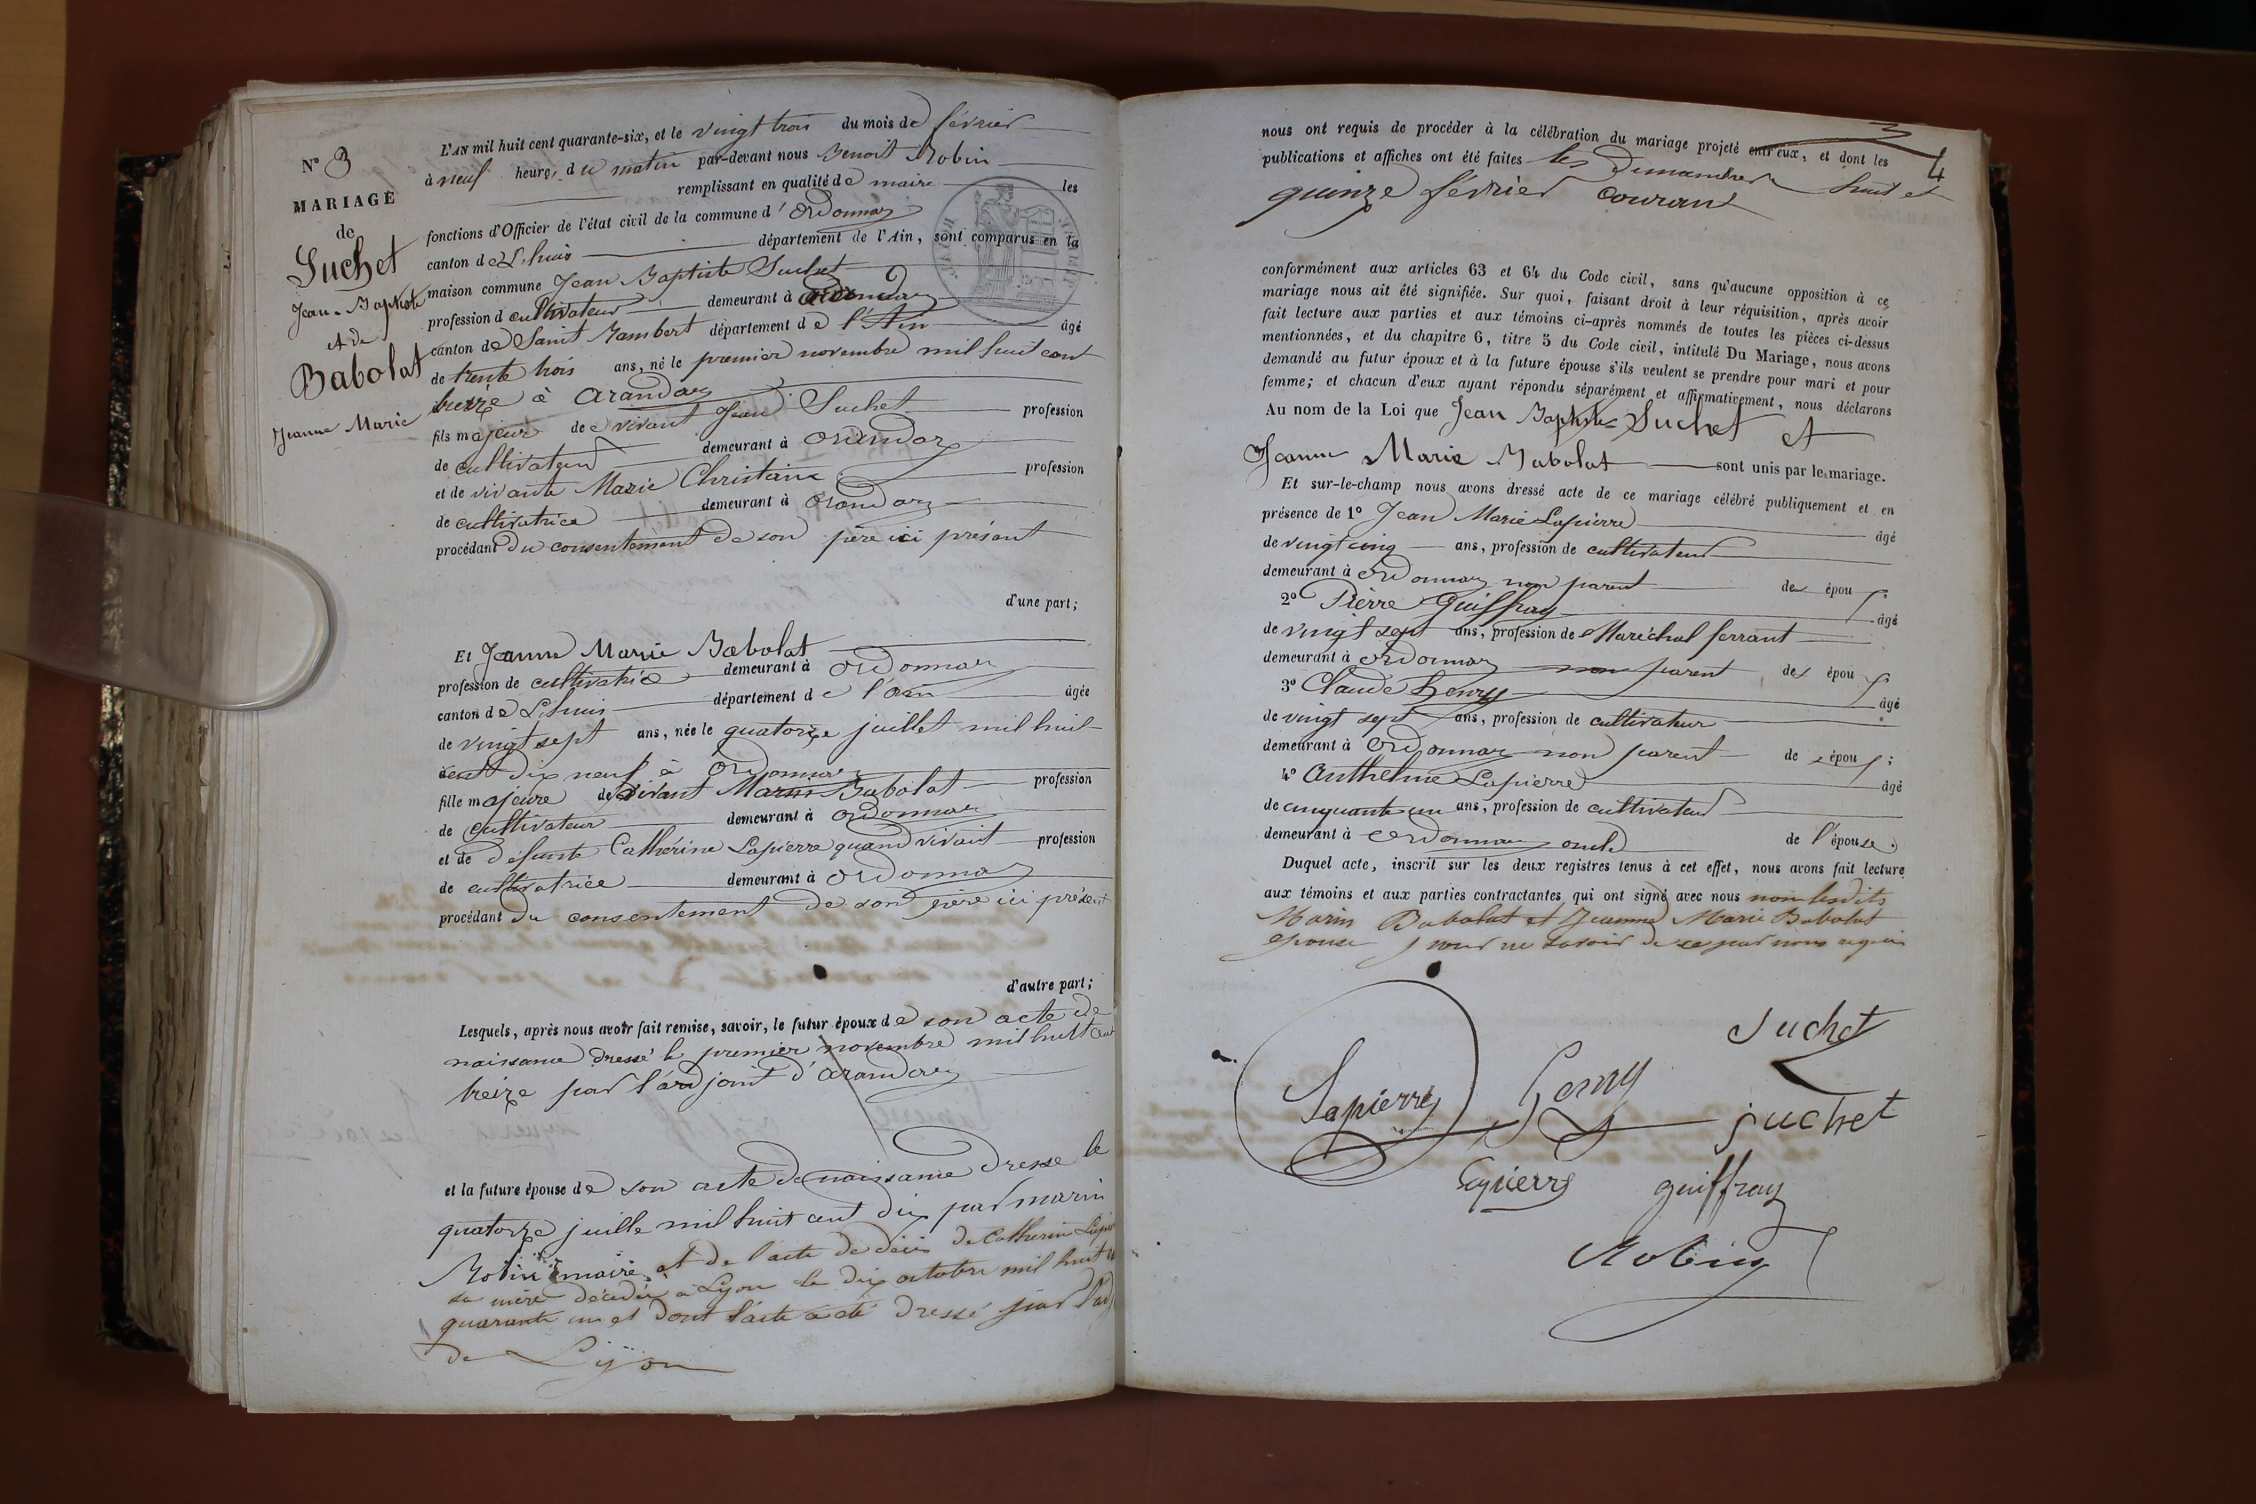 N° 3
MARIAGE
de
Suchet
Jean-Baptiste
et de
Babolat
Jeanne Marie
L'AN mil huit cent quarante-six, et le vingt trois du mois de février
à neuf heures du matin par-devant nous Benoit Robin
remplissant en qualité de maire les
fonctions d'Officier de l'état civil de la commune d'Ordonnaz
canton de L'huis département de l'Ain, sont comparus en la
maison commune Jean Baptiste Suchet
profession d cultivateur demeurant à
canton de Saint Rambert département de l'Ain âgé
de trente trois ans, né le premier novembre mil huit cent
treize à arandaz
fils majeur de vivant Jean Suchet profession
de cultivateur demeurant à arandaz
et de vivante Marie Christain profession
de cultivatrice demeurant à arandaz
procédant du consentement de son père ici présent
d'une part;
Et Jeanne Marie Babolat
profession de cultivatrice demeurant à ordonnaz
canton de L'huis département de l'ain âgée
de vingt sept ans, née le quatorze juillet mil huit
cent dix neuf à Ordonnaz
fille majeure de vivant Marin Babolat profession
de cultivateur demeurant à ordonnaz
et de défunte Cathérine Lapierre quand vivait profession
de cultivatrice demeurant à ordonnaz
procédant du consentement de son père ici présent
d'autre part;
Lesquels, après nous avoir fait remise, savoir, le futur époux de son acte de
naissance dressé le premier novembre mil huit cent
treize par l'adjoint d'arandaz
et la future épouse de son acte de naissance dresse le
quatorze juille mil huit cent dix par marin
Robin maire et de l'acte de décès de Catherin Lapier
sa mère décédée à Lyon le dix octobre mil huit
quarante un et dont l'acte a été dressé par l'adj
de Lyon
3
4
nous ont requis de procéder à la célébration du mariage projeté entr'eux, et dont les
publications et affiches ont été faites les Dimanches huit et
quinze février courant
conformément aux articles 63 et 64 du Code civil, sans qu'aucune opposition à ce
mariage nous ait été signifiée. Sur quoi, faisant droit à leur réquisition, après avoir
fait lecture aux parties et aux témoins ci-après nommés de toutes les pièces ci-dessus
mentionnées, et du chapitre 6, titre 5 du Code civil, intitulé Du Mariage, nous avons
demandé au futur époux et à la future épouse s'ils veulent se prendre pour mari et pour
femme; et chacun d'eux ayant répondu séparément et affirmativement, nous déclarons
Au nom de la Loi que Jean Baptiste Suchet et
Jeanne Marie Babolat sont unis par le mariage.
Et sur-le-champ nous avons dressé acte de ce mariage célébré publiquement et en
présence de 1° Jean Marie Lapierre âgé
de vingt cinq ans, profession de cultivateur
demeurant à Ordonnaz non parent des épou
2° Pierre Guiffray âgé
de vingt sept ans, profession de Maréchal ferrant
demeurant à ordonnaz non parent des épou
3° Claude Henry âgé
de vingt sept ans, profession de cultivateur
demeurant à Ordonnaz non parent de épou
4° Anthelme Lapierre âgé
de cinquante un ans, profession de cultivateur
demeurant à Ordonnaz oncle de l'épouse.
Duquel acte, inscrit sur les deux registres tenus à cet effet, nous avons fait lecture
aux témoins et aux parties contractantes qui ont signé avec nous non lesdits
Marin Babolat et Jeanne Marie Babolat
épouse pour ne savoir de ce par nous requis
Suchet
Lapierre
henry
Suchet
Lapierre
guiffray
Robin